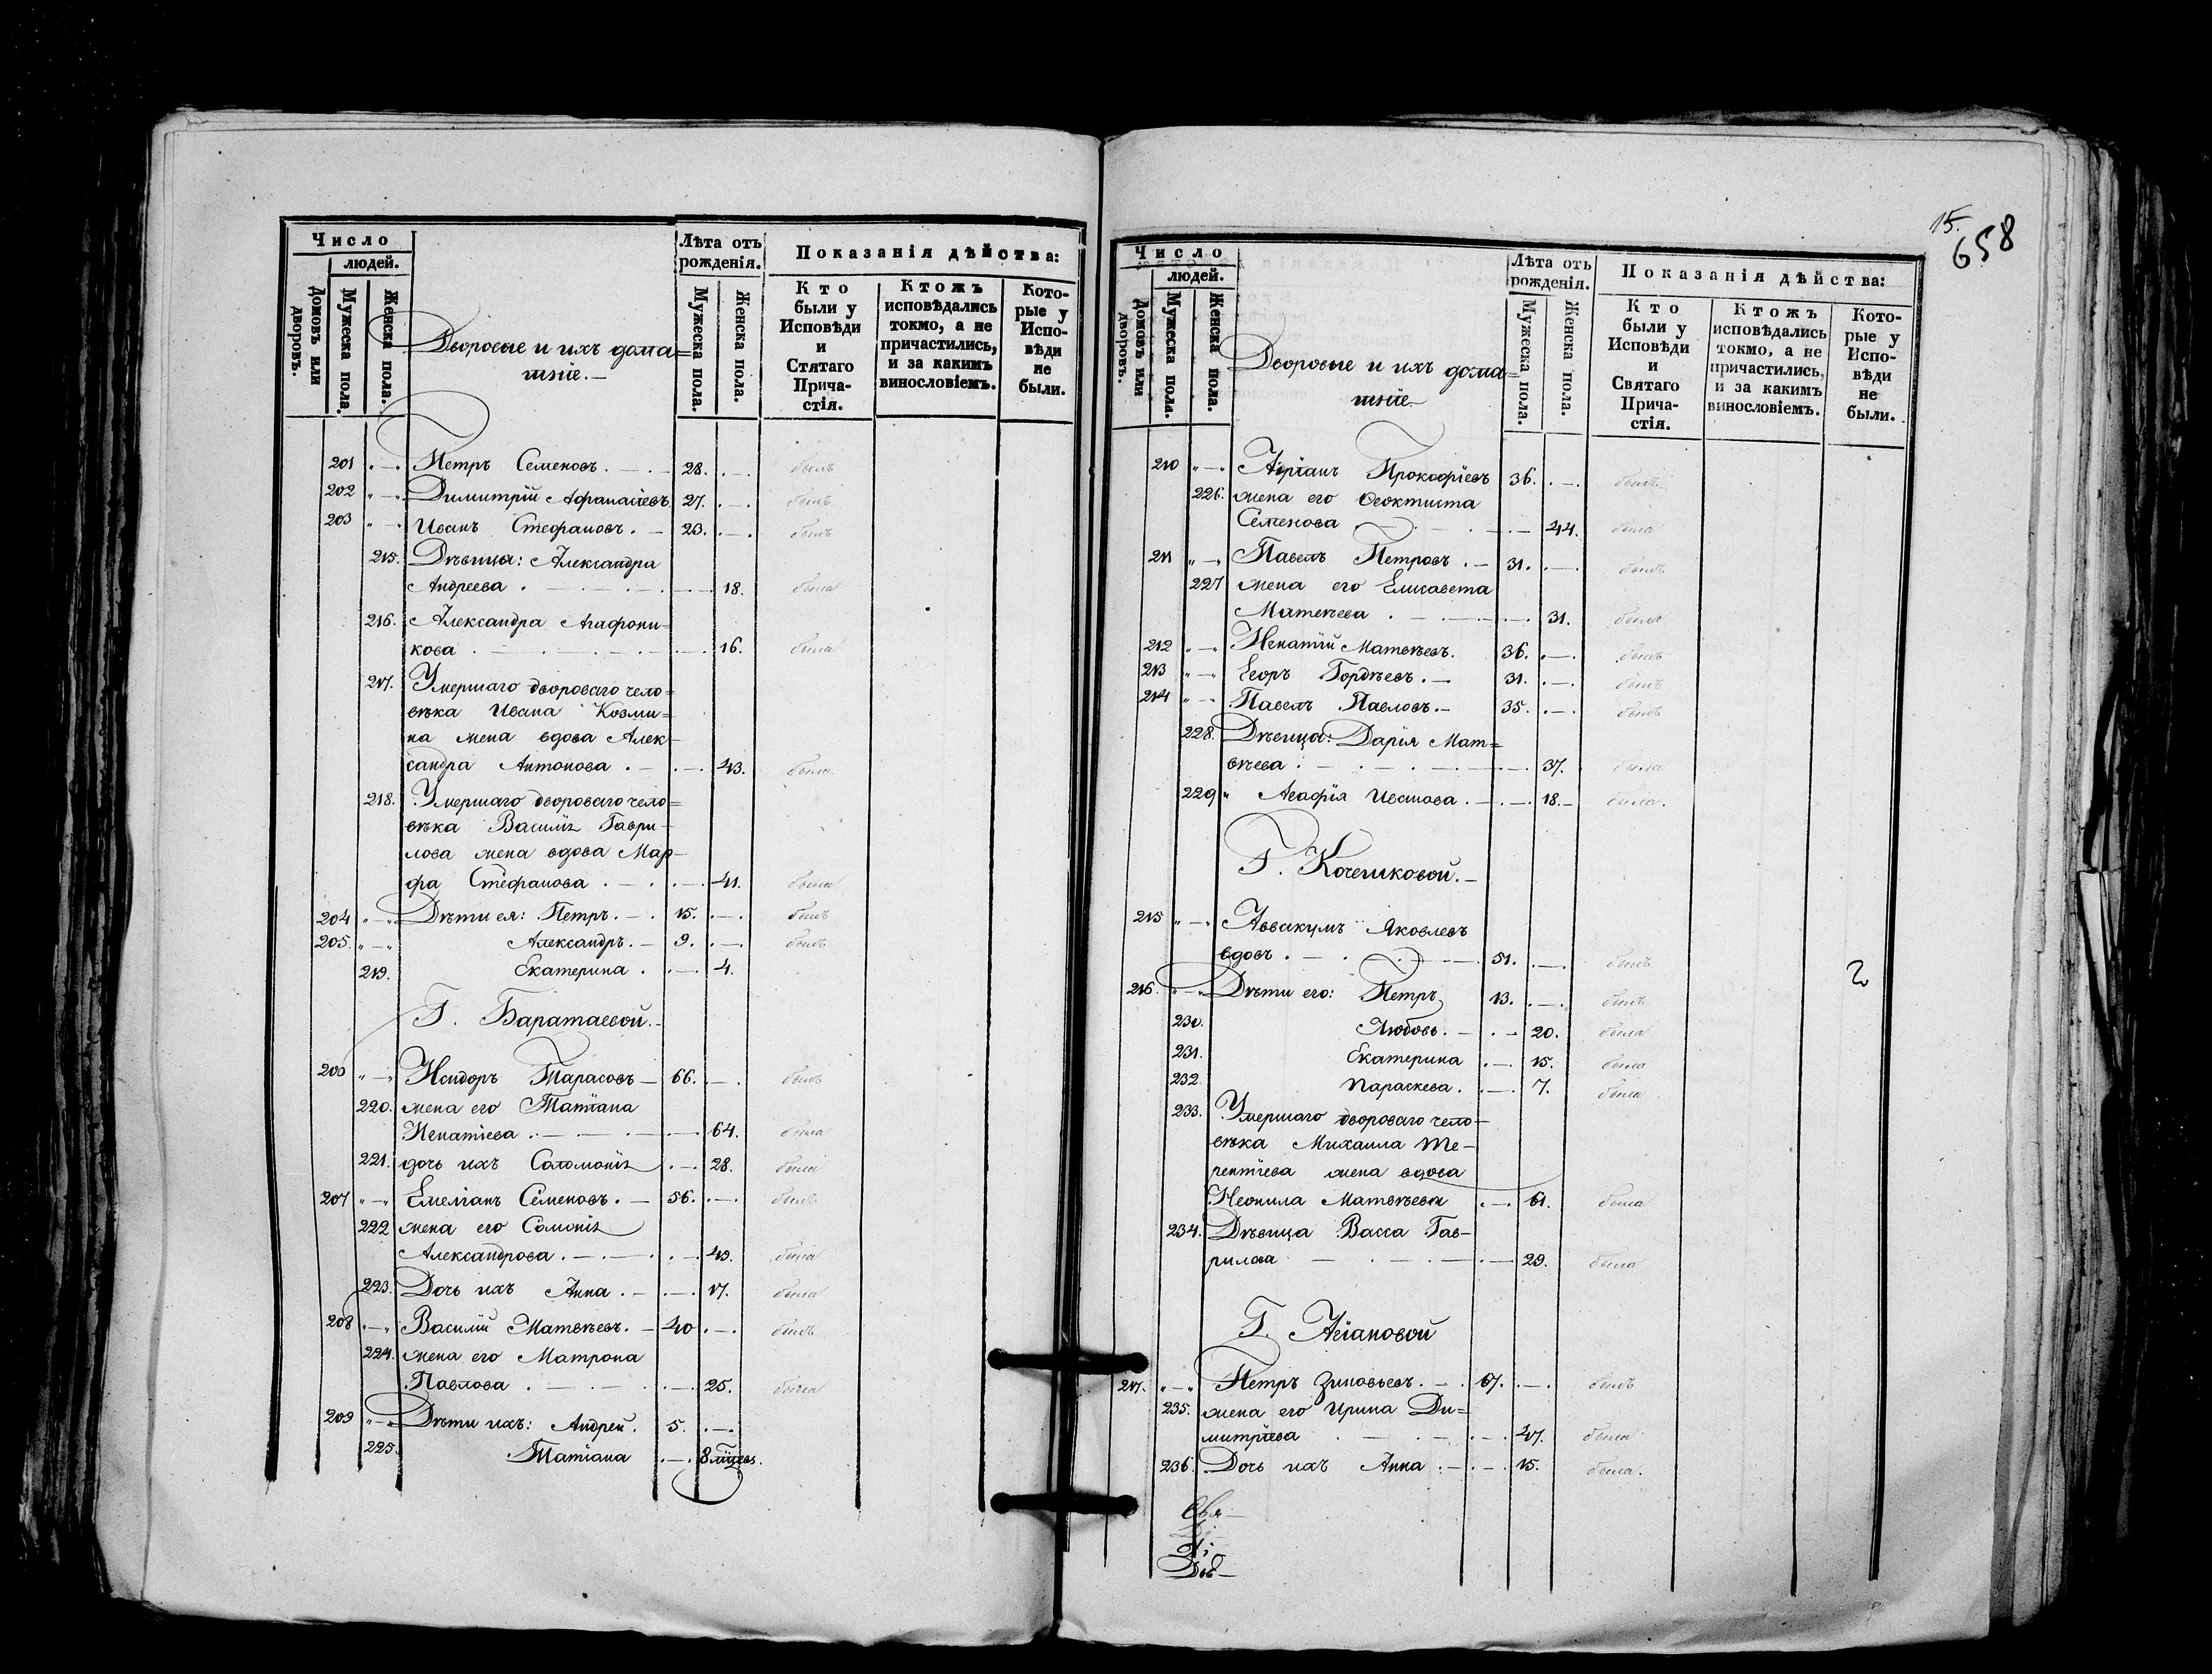 Число
людей.
Домовъ или дворовъ.
Мужеска пола.
Женска пола.
Дворовые и ихъ дома=
шніе.—
Лѣта отъ
рожденія.
Мужеска пола.
Женска пола.
Показанія дѣйства:
Кто
были у
Исповѣди
и
Стятаго
Прича-
стія.
Ктожъ
исповѣдались
токмо, а не
причастились,
и за какимъ
винословіемъ.
Кото-
рые у
Испо-
вѣди
не
были.
201 Петръ Семеновъ. 28. былъ
202 Димитрій Афанасіевъ 27. былъ
203 Иванъ Стефановъ. 23. былъ
215. Дѣвица: Александра
Андреева 18. была
216. Александра Агафони=
кова 16. была
217. Умершаго двороваго чело=
вѣка Ивана Козми=
на жена вдова Алек-
сандра Антонова 43. была
218. Умершаго двороваго чело=
вѣка Василія Гаври-
лова жена вдова Мар-
фа Стефанова 41. была
204 Дѣти ея: Петръ. 15. былъ
205. Александръ. 9. былъ
219. Екатерина 4.
Г. Баратаевой.
206 Исидоръ Тарасовъ 66. былъ
220. жена его Татіана
Игнатіева 64. была
221. дочь ихъ Соломонія 28. была
207 Емеліанъ Семеновъ. 56. былъ
222 жена его Соломонія
Александрова. 49. была
223. Дочь ихъ Анна 17. была
208 Василій Матвѣевъ. 40 былъ
224. жена его Матрона
Павлова 25. была
209 Дѣти ихъ: Андрей. 5.
225. Татіана 8 мѣсяц.
15.
658
Число
людей.
Домовъ или дворовъ.
Мужеска пола.
Женска пола.
Дворовые и ихъ дома=
шніе
Лѣта отъ
рожденія.
Мужеска пола.
Женска пола.
Показанія дѣйства:
Кто
были у
Исповѣди
и
Святаго
Прича-
стія.
Ктожъ
исповѣдались
токмо, а не
причастились,
и за какимъ
винословіемъ.
Кото-
рые у
Испо-
вѣди
не
были.
210 Адріанъ Прокофіевъ 36. былъ
226. жена его Феоктиста
Семенова 44. была
211 Павелъ Петровъ 31. былъ
227 жена его Елисавета
Матвѣева 31. была
212 Игнатій Матвѣевъ. 36. былъ
213 Егоръ Гордѣевъ. 31. былъ
214 Павелъ Павловъ. 35. былъ
228. Дѣвица: Дарія Мат=
вѣева 37. была
229 Агафія Иванова 18. была.
Г. Кочешковой.
215 Аввакумъ Яковлевъ
вдовъ 51. былъ
216. Дѣти его: Петръ 13. былъ
230. Любовь. 20. была
231. Екатерина 15. была
232 Параскева. 7. была
233. Умершаго двороваго чело-
вѣка Михаила Те-
рентіева жена вдова
Неонила Матвѣева 61. была
234. Дѣвица Васса Гав-
рилова 29. была
Г. Агіановой
217. Петръ Зиновьевъ. 67. былъ
235. жена его Ирина Ди=
митріева 47. была
236. Дочь ихъ Анна 15. была.